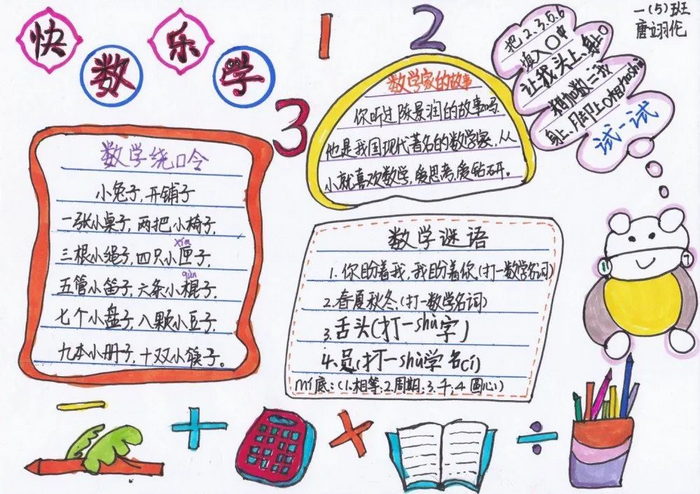 快数乐学
1
2
3
一(5)班
唐诩伦
数学绕口令
小兔子,开铺子
一张小桌子,两把小椅子,
三根小绳子,四只小匣子,
xiá
五管小笛子,六条小棍子,
gùn
七个小盘子,八颗小豆子,
九本小册子,十双小筷子。
数学家的故事
你听过陈景润的故事吗
他是我国现代著名的数学家,从
小就喜欢数学,爱思考,爱钻研。
把2.3.5.6
填入○中
让我头上、身上
试一试
数学谜语
1.你盼着我,我盼着你(打一数学名词)
2.春夏秋冬(打一数学名词)
3.舌头(打一shù字)
4.员(打一shù学名cí)
mí底:(1.相等;2.周期;3.千;4.圆心)
− + × ÷